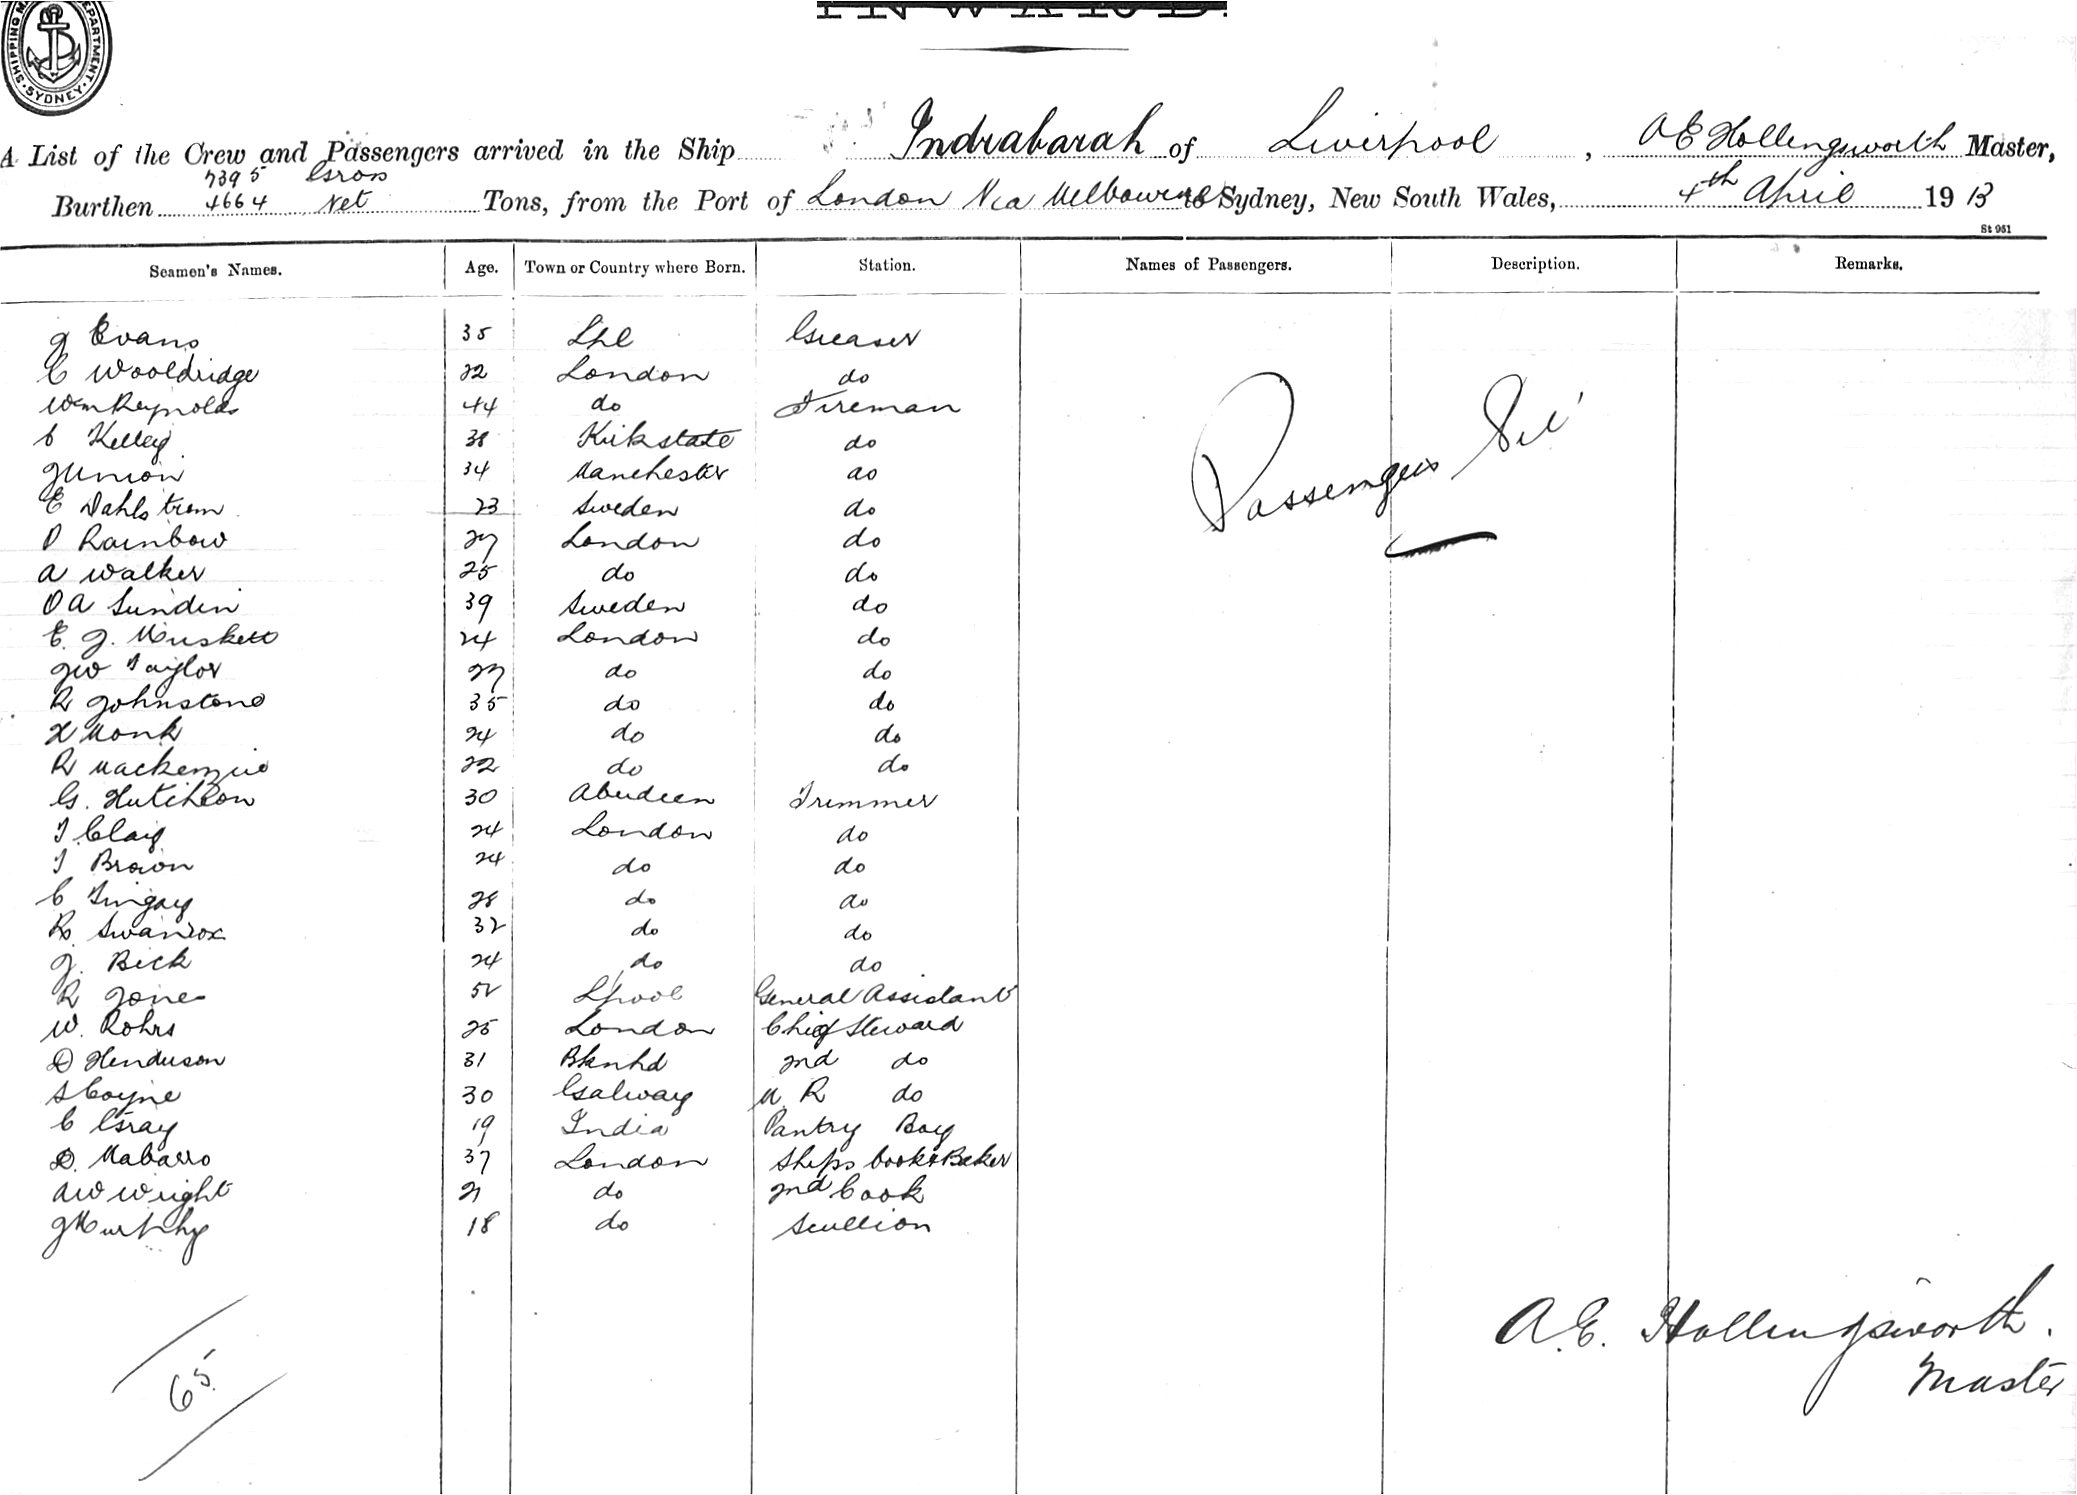 SHIPPING MA DEPARTMENT
SYDNEY
INWARD.
A List of the Crew and Passengers arrived in the Ship Indrabarah of Liverpool, A E Hollingsworth Master,
7395 Gross
Burthen 4664 Net Tons, from the Port of London Via Melbourne to Sydney, New South Wales, 4th April 1913
St 961
Seamen's Names. Age. Town or Country where Born. Station. Names of Passengers. Description. Remarks.
J Evans 35 Lpl Greaser
C Wooldridge 22 London do
Wm Reynolds 44 do Fireman
C Kelley 38 Kirkstate do
J Union 34 Manchester do
E Dahlstrom 23 Sweden do
D Rainbow 27 London do
A Walker 25 do do
O A Sundin 39 Sweden do
E. J. Muskett 24 London do
JW Taylor 27 do do
R Johnstone 35 do do
H Monk 24 do do
R Mackenzie 22 do do
G. Hutcheon 30 Aberdeen Trimmer
T Clay 24 London do
T Brown 24 do do
C Tingay 28 do do
R. 32 do do
J. Beck 24 do do
R Jones 52 Lpool General Assistant
W. Rohrs 25 London Chief Steward
D Henderson 31 Bknhd 2nd do
S Coyne 30 Galway M R do
C Gray 19 India Pantry Boy
D. Mabarro 37 London Ships Cook & Baker
AW Wright 21 do 2nd Cook
J Murphy 18 do Scullion
Passengers Nil
65
A. E. Hollingsworth.
Master